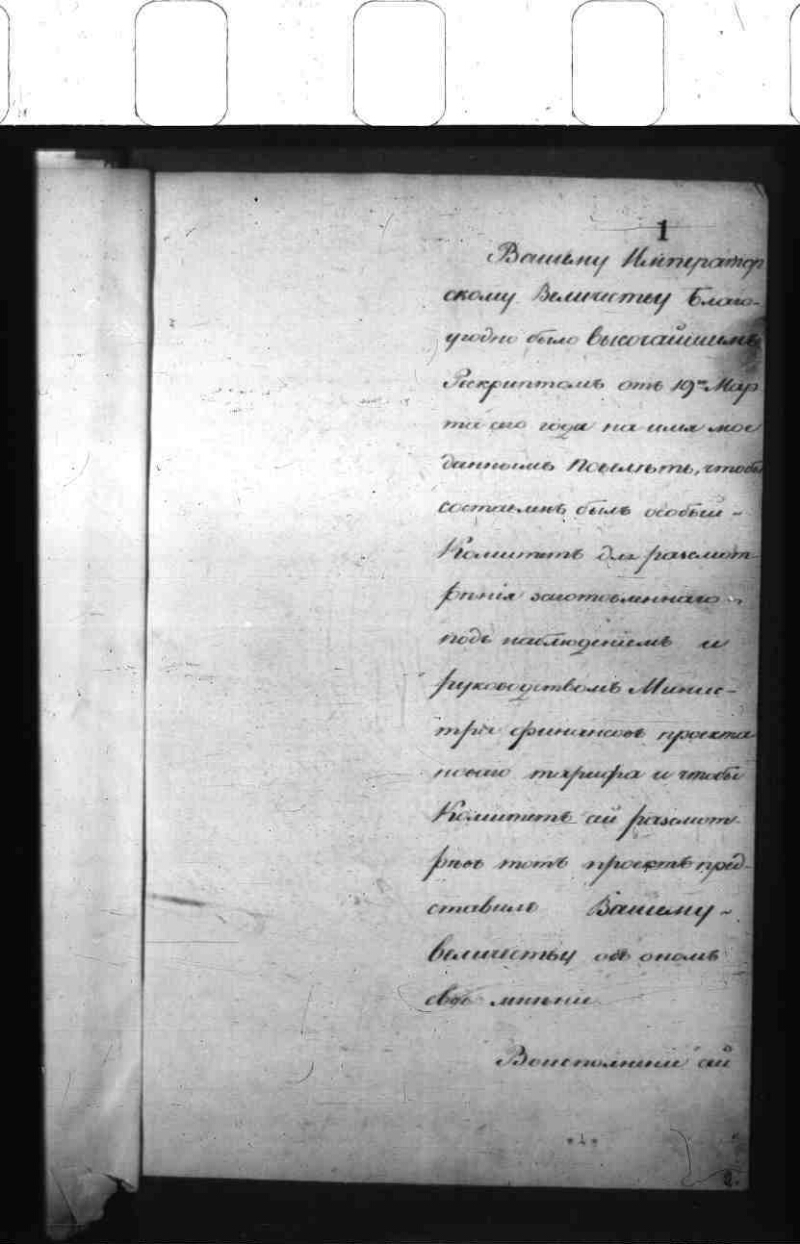 1
Вашему Император
скому Величеству Благо-
угодно было высочайшимъ
Рескриптомъ отъ 19го Мар
та сего года на имя мое
даннымъ повелѣть, чтобы
составленъ былъ особый
Комитетъ для разсмот
рѣнія заготовленнаго
подъ наблюденіемъ и
руководствомъ Минис-
тра финансовъ проекта
новаго тарифа и чтобы
Комитетъ сей разсмот
рѣвъ тотъ проектъ пред-
ставилъ Вашему
величеству объ ономъ
свое мнѣніе
Воисполненіе сей